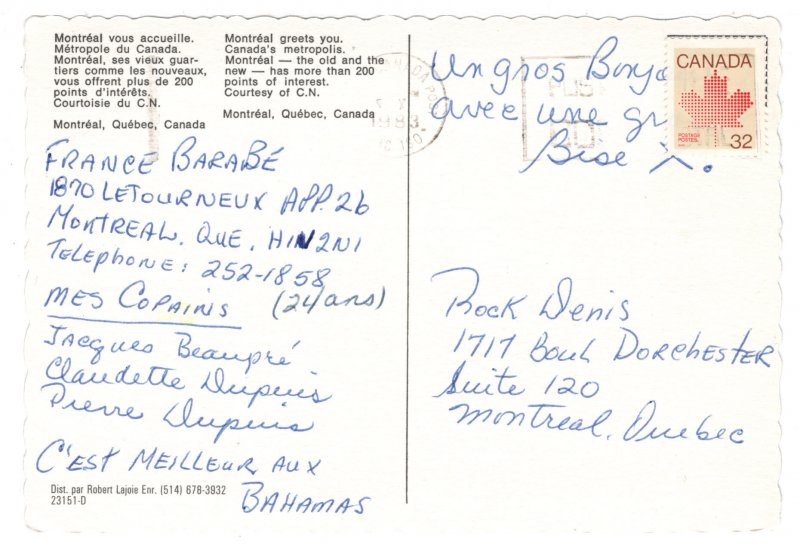 Montréal vous accueille.
Métropole du Canada.
Montréal, ses vieux quar-
tiers comme les nouveaux,
vous offrent plus de 200
points d'intérêts.
Courtoisie du C.N.
Montréal, Québec, Canada
Montréal greets you.
Canada's metropolis.
Montréal — the old and the
new — has more than 200
points of interest.
Courtesy of C.N.
Montréal, Québec, Canada
FRANCE BARABÉ
1870 LETOURNEUX APP. 26
MONTREAL, QUE, H1N2N1
TELEPHONE: 252-1858
MES COPAINS (24 ans)
Jacques Beaupré
Claudette Dupuis
Pierre Dupuis
C'EST MEILLEUR AUX
BAHAMAS
Dist. par Robert Lajoie Enr. (514) 678-3932
23151-D
Un gros
avec une
Bise X.
CANADA
POSTAGE
POSTES
32
1983
Rock Denis
1717 Boul. DORCHESTER
Suite 120
Montreal, Quebec